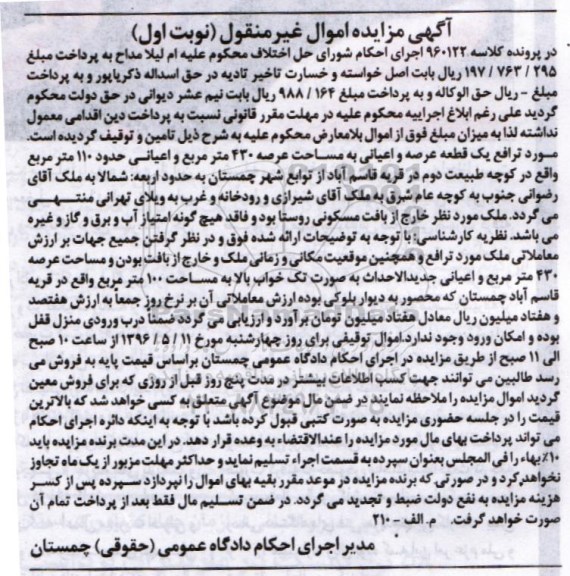 آگهی مزایده اموال غیرمنقول (نوبت اول)
در پرونده کلاسه ۹۶۰۱۲۲ اجرای احکام شورای حل اختلاف محکوم علیه ام لیلا مداح به پرداخت مبلغ
۱۹۷/۷۶۳/۲۹۵ ریال بابت اصل خواسته و خسارت تاخیر تادیه در حق اسداله ذکریاپور و به پرداخت
مبلغ - ریال حق الوکاله و به پرداخت مبلغ ۹۸۸/۱۶۴ ریال بابت نیم عشر دیوانی در حق دولت محکوم
گردید علی رغم ابلاغ اجراییه محکوم علیه در مهلت مقرر قانونی نسبت به پرداخت دین اقدامی معمول
نداشته لذا به میزان مبلغ فوق از اموال بلامعارض محکوم علیه به شرح ذیل تامین و توقیف گردیده است.
مورد ترافع یک قطعه عرصه و اعیانی به مساحت عرصه ۴۳۰ متر مربع و اعیانی حدود ۱۱۰ متر مربع
واقع در کوچه طبیعت دوم در قریه قاسم آباد از توابع شهر چمستان به حدود اربعه: شمالا به ملک آقای
رضوانی جنوب به کوچه عام شرق به ملک آقای شیرازی و رودخانه و غرب به ویلای تهرانی منتهی
می گردد. ملک مورد نظر خارج از بافت مسکونی روستا بود و فاقد هیچ گونه امتیاز آب و برق و گاز و غیره
می باشد. نظریه کارشناسی: با توجه به توضیحات ارائه شده فوق و در نظر گرفتن جمیع جهات بر ارزش
معاملاتی ملک مورد ترافع و همچنین موقعیت مکانی و زمانی ملک و خارج از بافت بودن و مساحت عرصه
۴۳۰ متر مربع و اعیانی جدیدالاحداث به صورت تک خواب بالا به مساحت ۱۰۰ متر مربع واقع در قریه
قاسم آباد چمستان که محصور به دیوار بلوکی بوده ارزش معاملاتی آن بر نرخ روز جمعاً به ارزش هفتصد
و هفتاد میلیون ریال معادل هفتاد میلیون تومان برآورد و ارزیابی می گردد ضمناً درب ورودی منزل قفل
بوده و امکان ورود وجود ندارد. اموال توقیفی برای روز چهارشنبه مورخ ۱۳۹۶/۵/۱۱ از ساعت ۱۰ صبح
الی ۱۱ صبح از طریق مزایده در اجرای احکام دادگاه عمومی چمستان براساس قیمت پایه به فروش می
رسد طالبین می توانند جهت کسب اطلاعات بیشتر در مدت پنج روز قبل از روزی که برای فروش معین
گردید اموال مزایده را ملاحظه نمایند در ضمن مال موضوع آگهی متعلق به کسی خواهد شد که بالاترین
قیمت را در جلسه حضوری مزایده به صورت کتبی قبول کرده باشد با توجه به اینکه دائره اجرای احکام
می تواند پرداخت بهای مال مورد مزایده را عندالاقتضاء به وعده قرار دهد. در این مدت برنده مزایده باید
۱۰٪ بهاء را فی المجلس بعنوان سپرده به قسمت اجراء تسلیم نماید و حداکثر مهلت مزبور از یک ماه تجاوز
نخواهد کرد و در صورتی که برنده مزایده در موعد مقرر بقیه بهای اموال را نپردازد سپرده پس از کسر
هزینه مزایده به نفع دولت ضبط و تجدید می گردد. در ضمن تسلیم مال فقط بعد از پرداخت تمام آن
صورت خواهد گرفت. م-الف-۲۱۰
مدیر اجرای احکام دادگاه عمومی (حقوقی) چمستان